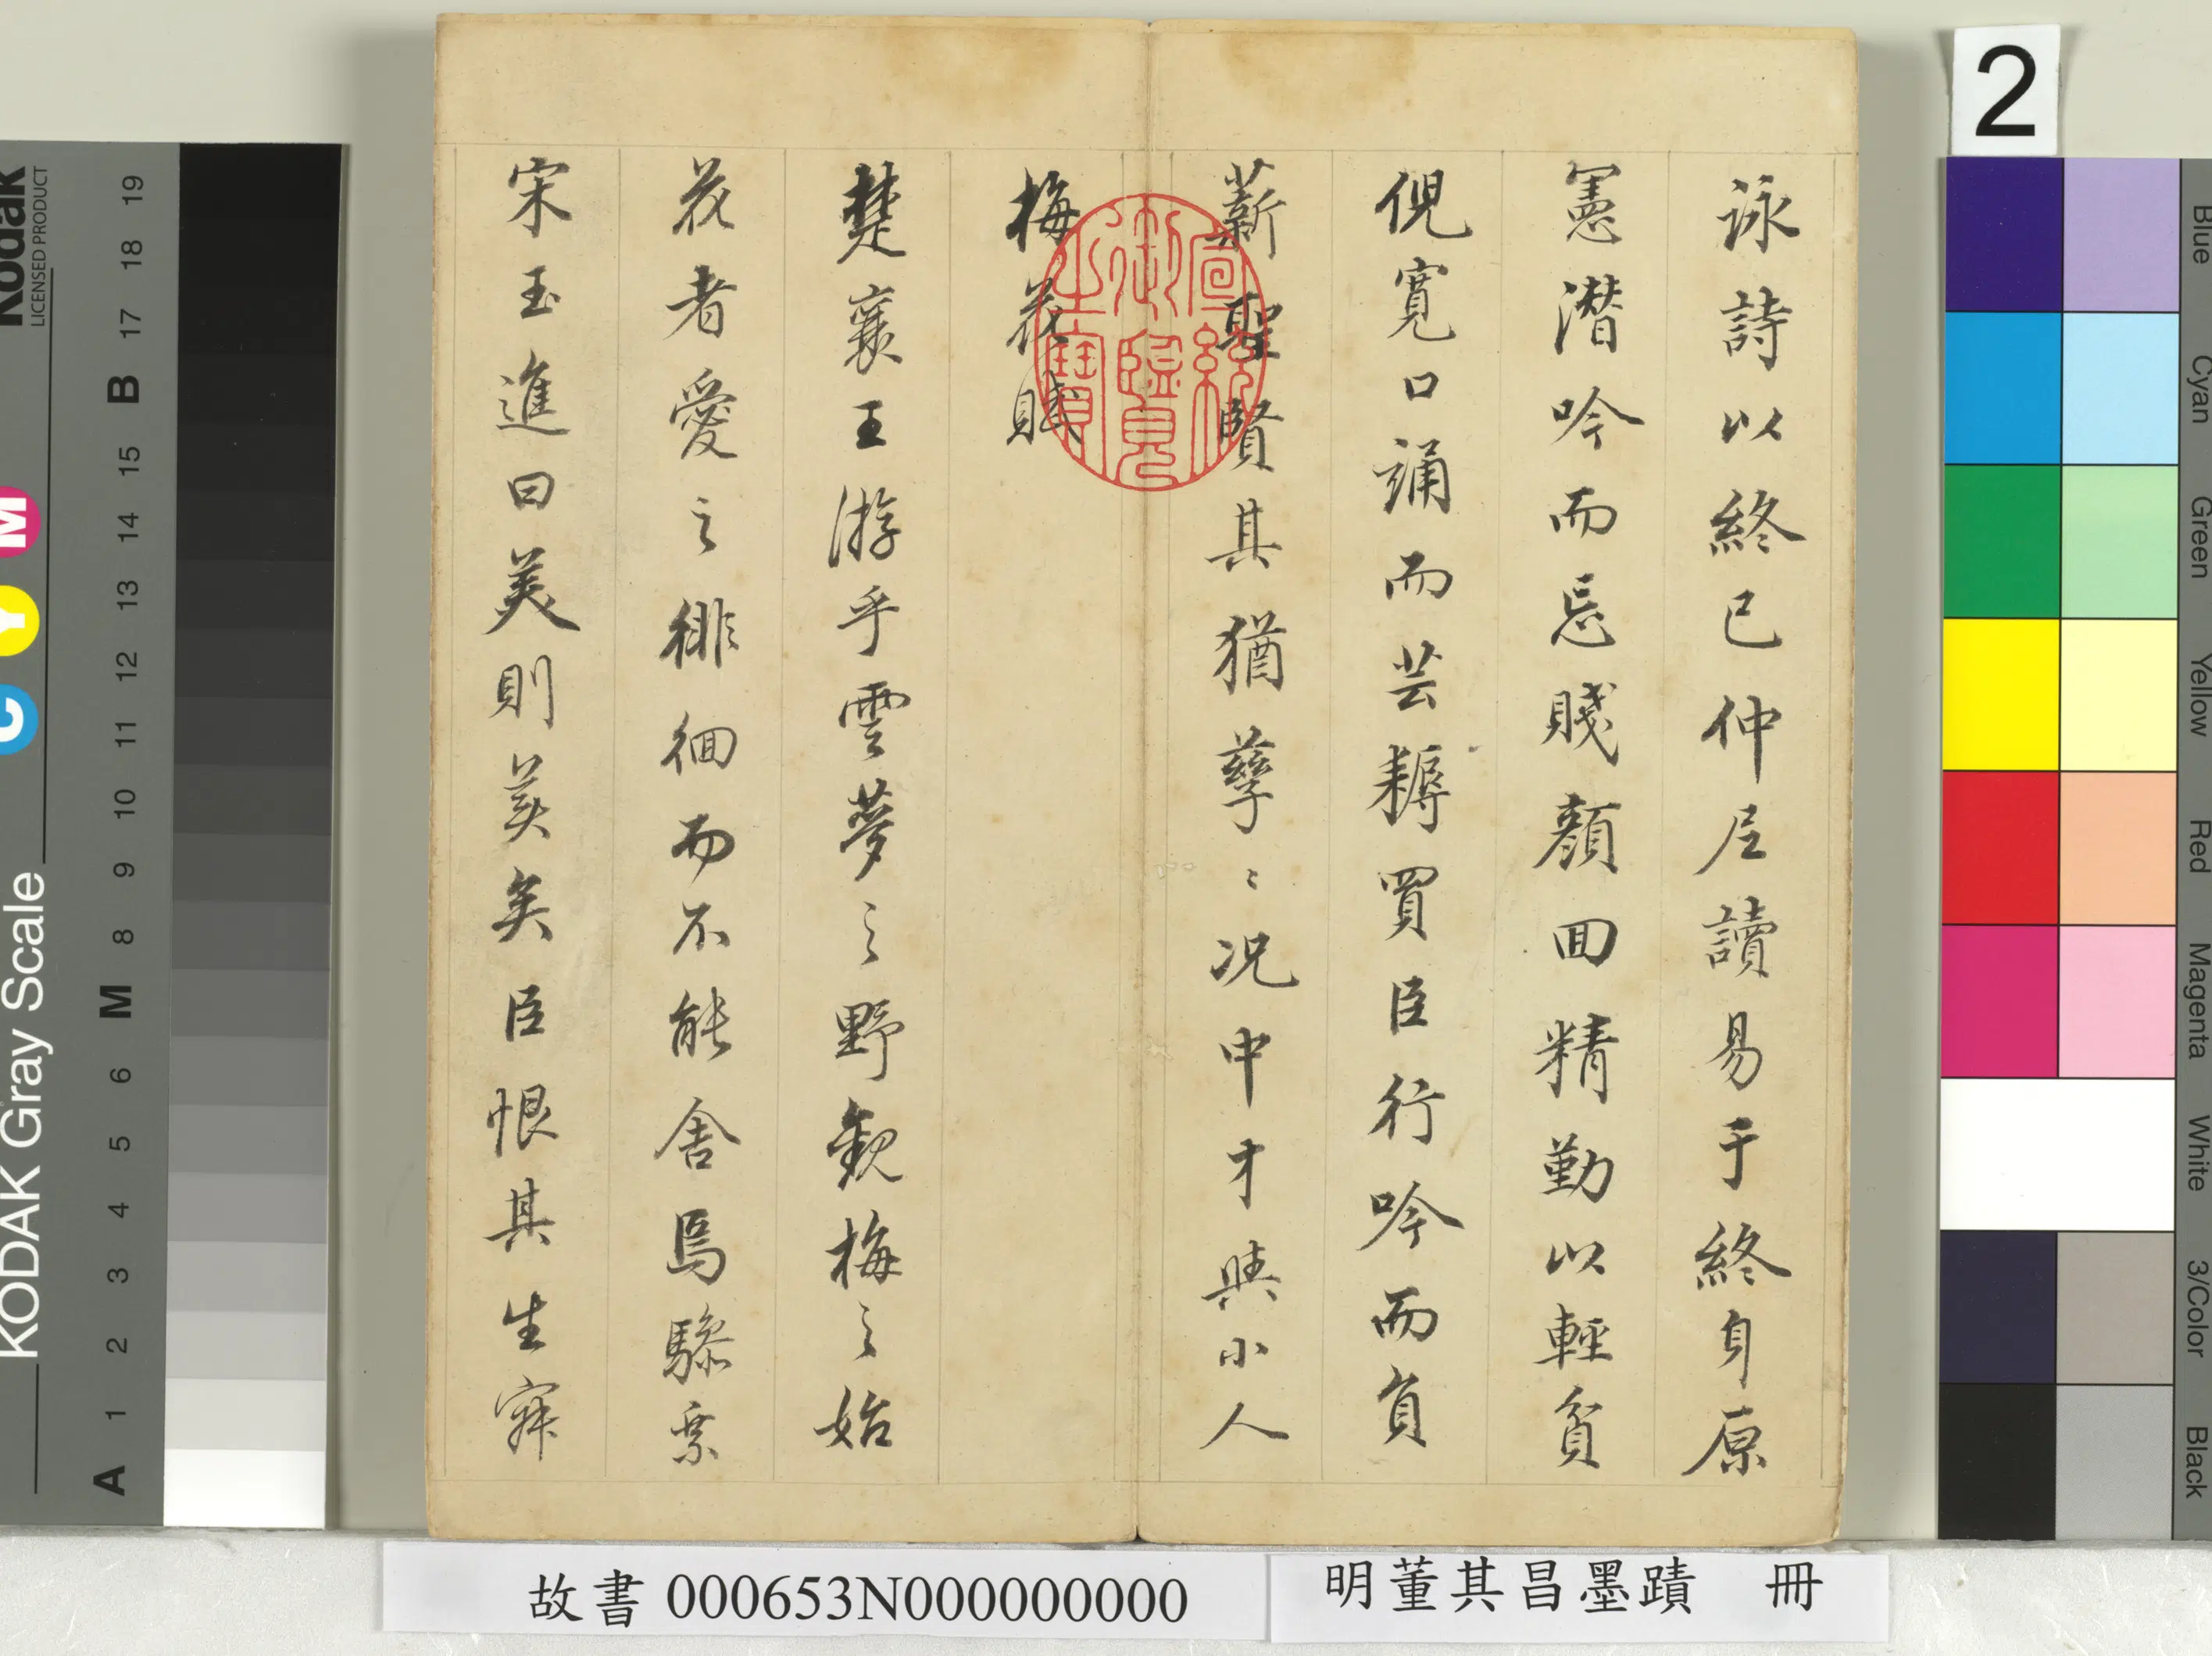 詠詩以終已仲尼讀易于終身原
憲潛吟而忘賤顏回精勤以輕貧
倪寬口誦而芸耨買臣行吟而負
薪聖賢其猶孳〻況中才與小人
梅花賦
楚襄王游乎雲夢之野觀梅之始
花者愛之徘徊而不能舍焉驂乘
宋玉進曰美則美矣臣恨其生寂
宣統御覽之寶
2
故書 000653N000000000
明董其昌墨蹟 冊
KODAK Gray Scale
Kodak
LICENSED PRODUCT
C Y M
A 1 2 3 4 5 6 M 8 9 10 11 12 13 14 15 B 17 18 19
Blue
Cyan
Green
Yellow
Red
Magenta
White
3/Color
Black